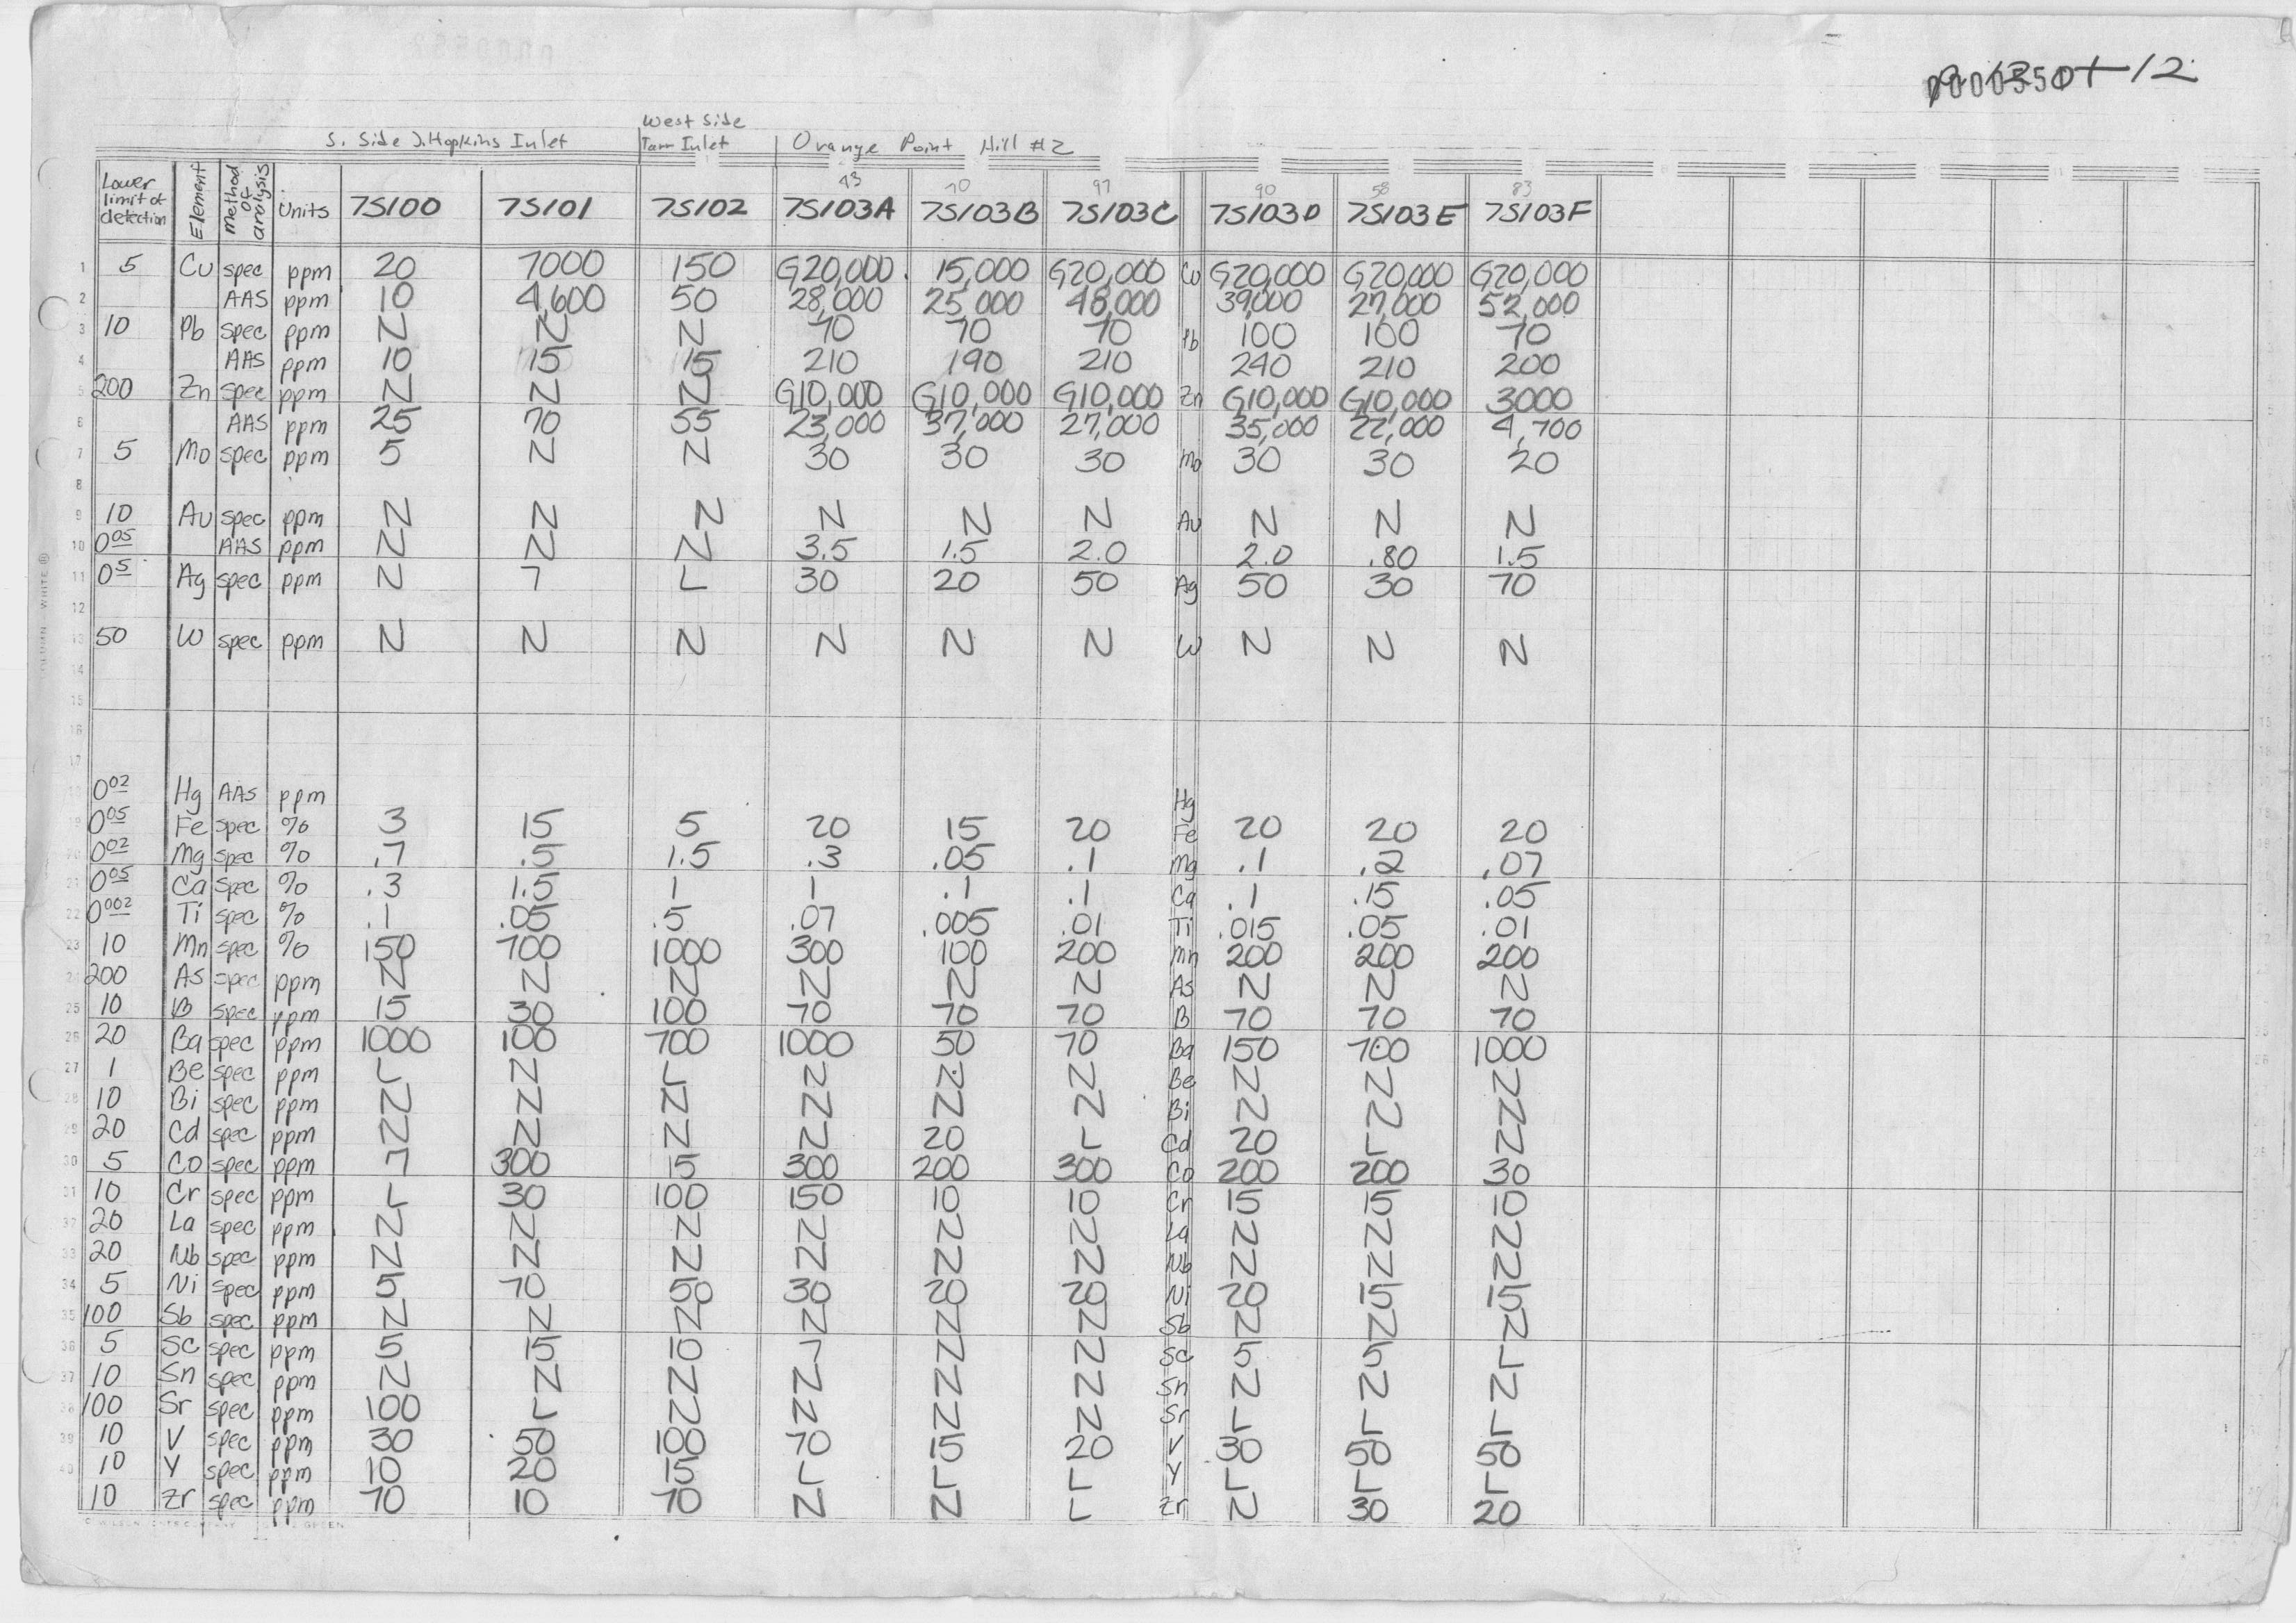 West Side
S. Side J. Hopkins Inlet Tarr Inlet Orange Point Hill #2
43 70 97 90 58 83
Lower limit of detection Element Method of analysis Units 7S100 7S101 7S102 7S103A 7S103B 7S103C 7S103D 7S103E 7S103F
1 5 Cu spec ppm 20 7000 150 G20,000 15,000 G20,000 Cu G20,000 G20,000 G20,000
2 AAS ppm 10 4,600 50 28,000 25,000 48,000 39,000 27,000 52,000
3 10 Pb spec ppm N N N 70 70 70 Pb 100 100 70
4 AAS ppm 10 15 15 210 190 210 240 210 200
5 200 Zn spec ppm N N N G10,000 G10,000 G10,000 Zn G10,000 G10,000 3000
6 AAS ppm 25 70 55 23,000 37,000 27,000 35,000 22,000 4,700
7 5 Mo spec ppm 5 N N 30 30 30 Mo 30 30 20
8
9 10 Au spec ppm N N N N N N Au N N N
10 0.05 AAS ppm N N N 3.5 1.5 2.0 2.0 .80 1.5
11 0.5 Ag spec ppm N 7 L 30 20 50 Ag 50 30 70
12
13 50 W spec ppm N N N N N N W N N N
14
15
16
17
0.02 Hg AAS ppm Hg
19 0.05 Fe spec % 3 15 5 20 15 20 Fe 20 20 20
20 0.02 Mg spec % .7 .5 1.5 .3 .05 .1 Mg .1 .2 .07
21 0.05 Ca spec % .3 1.5 1 1 .1 .1 Ca .1 .15 .05
22 0.002 Ti spec % .1 .05 .5 .07 .005 .01 Ti .015 .05 .01
23 10 Mn spec % 150 700 1000 300 100 200 Mn 200 200 200
24 200 As spec ppm N N N N N N As N N N
25 10 B spec ppm 15 30 100 70 70 70 B 70 70 70
26 20 Ba spec ppm 1000 100 700 1000 50 70 Ba 150 700 1000
27 1 Be spec ppm L N L N N N Be N N N
28 10 Bi spec ppm N N N N N N Bi N N N
29 20 Cd spec ppm N N N N 20 L Cd 20 L N
30 5 Co spec ppm 7 300 15 300 200 300 Co 200 200 30
31 10 Cr spec ppm L 30 100 150 10 10 Cr 15 15 10
32 20 La spec ppm N N N N N N La N N N
33 20 Nb spec ppm N N N N N N Nb N N N
34 5 Ni spec ppm 5 70 50 30 20 20 Ni 20 15 15
35 100 Sb spec ppm N N N N N N Sb N N N
36 5 Sc spec ppm 5 15 10 7 N N Sc 5 5 L
37 10 Sn spec ppm N N N N N N Sn N N N
38 100 Sr spec ppm 100 L N N N N Sr L L L
39 10 V spec ppm 30 50 100 70 15 20 V 30 50 50
40 10 Y spec ppm 10 20 15 L L L Y L L L
10 Zr spec ppm 70 10 70 N N L Zr N 30 20